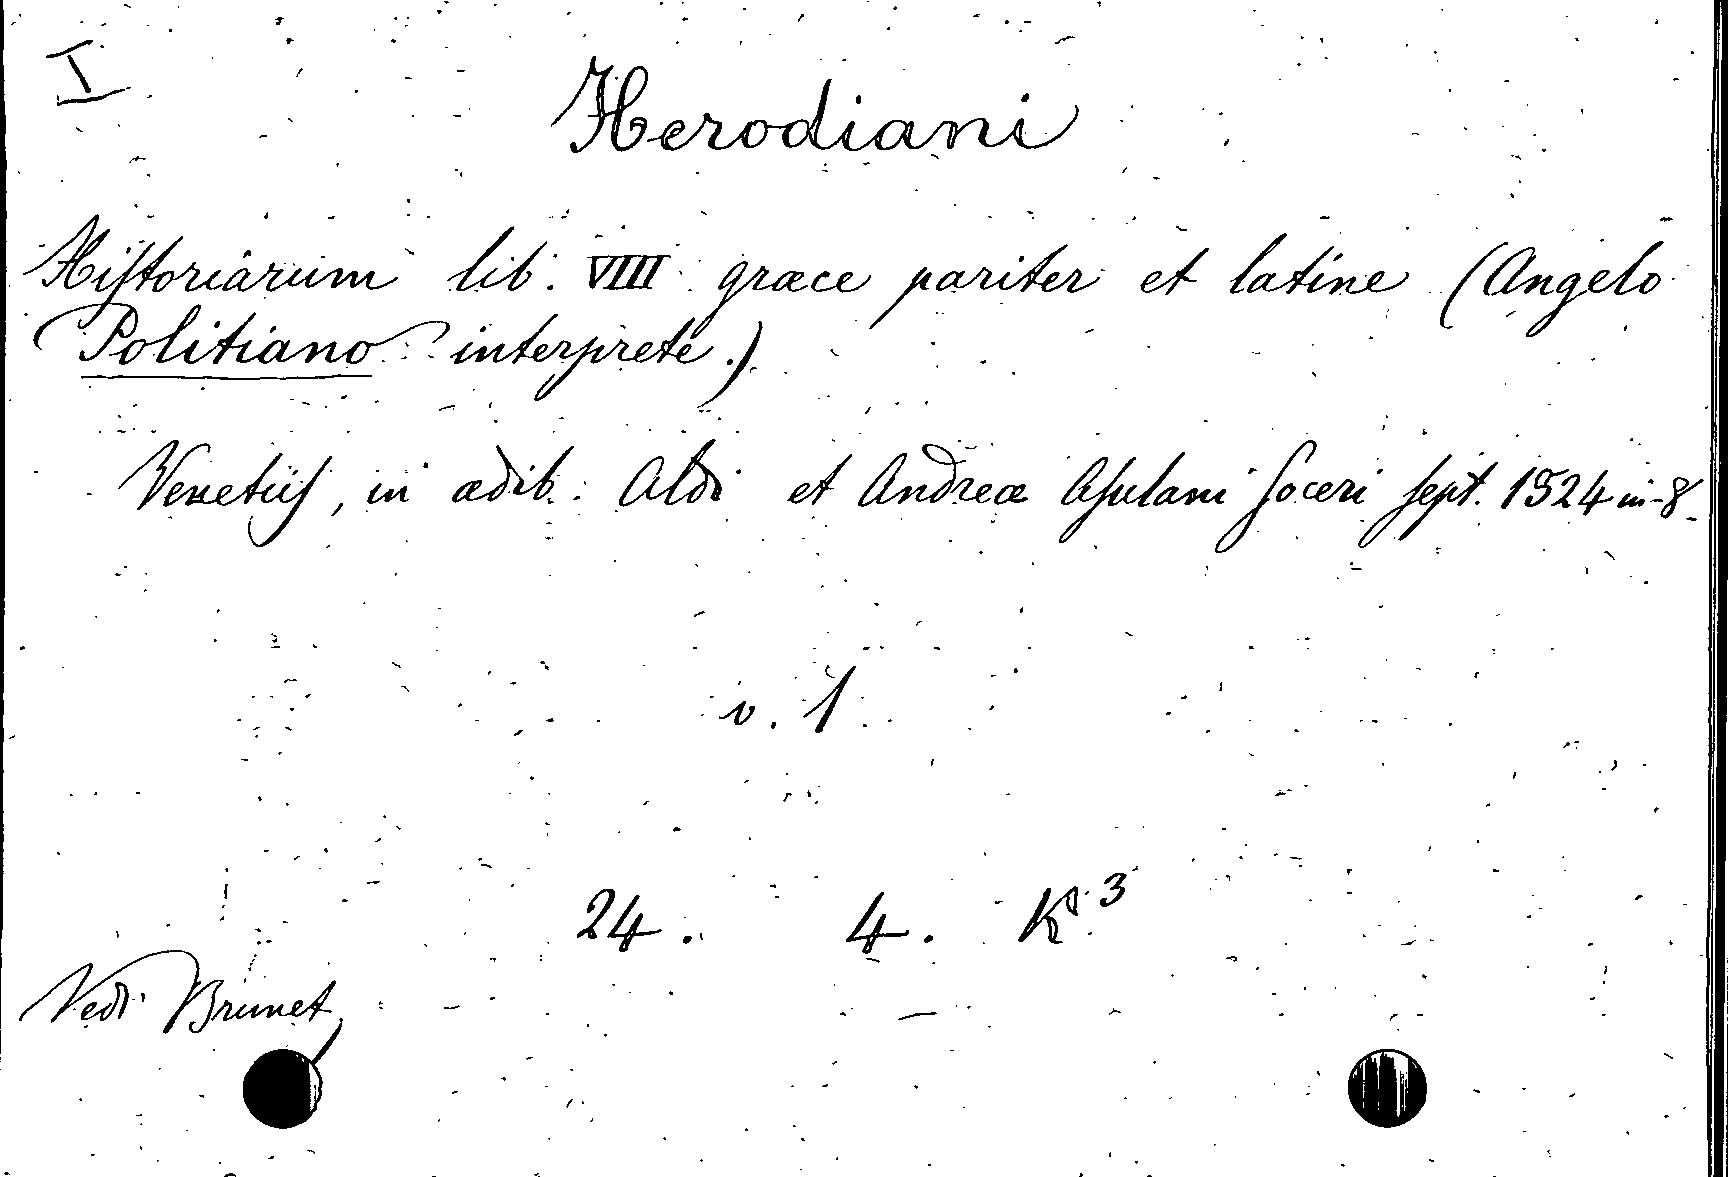 I
Herodiani
Historiarum lib. VIII græce pariter et latine (Angelo
Politiano interprete.)
Venetiis, in ædib. Aldi et Andreæ Asulani soceri sept. 1524 in-8.
v. 1
24. 4. K 3
Vedi Brunet